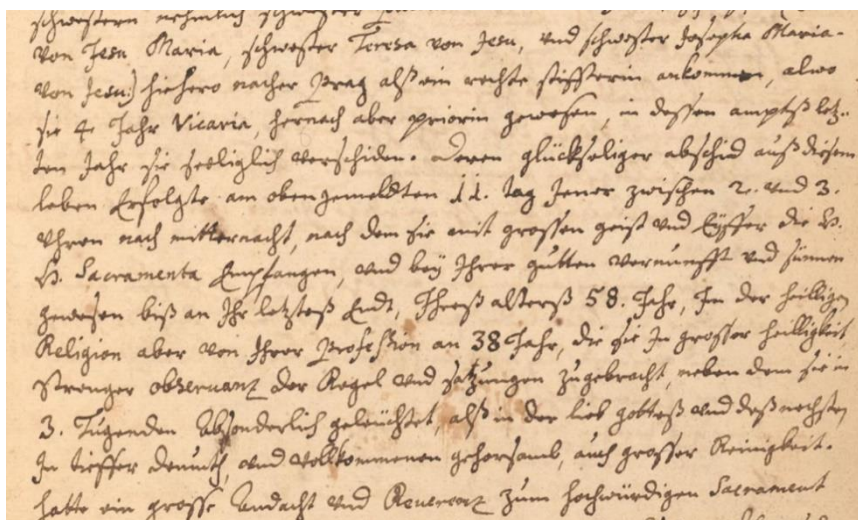 schwestern nehmlich schwester
von Jesu Maria, schwester Teresa von Jesu, vnd schwester Josepha Maria
von Jesu:) hiehero nacher Prag alß ein rechte stiffterin ankommen, alwo
sie 4 Jahr Vicaria, hernach aber priorin gewesen, in dessen amptß letz-
ten Jahr sie seeliglich verschiden. deren glückseliger abschid auß diesem
leben Erfolgte am obengemeldten 11. tag Jener zwischen 2. vnd 3.
Vhren nach mitternacht, nach dem sie mit grossen geist vnd Eyffer die H.
H. Sacramenta Empfangen, vnd bey Ihrer gutten vernunfft vnd sinnen
gewesen biß an Ihr letzteß Endt, Ihreß alterß 58. Jahr, In der heiligen
Religion aber von Ihrer Profession an 38 Jahr, die sie In grosser heiligkeit
strenger obseruantz der Regel vnd satzungen zugebracht, neben dem sie in
3. Tugenden absonderlich geleüchtet, alß in der lieb gotteß vnd deß nechsten,
In tieffer demuth, vnd vollkommenen gehorsamb, auch grosser Reinigkeit.
hatte ein grosse andacht vnd Reuerentz zum hochwürdigen Sacrament